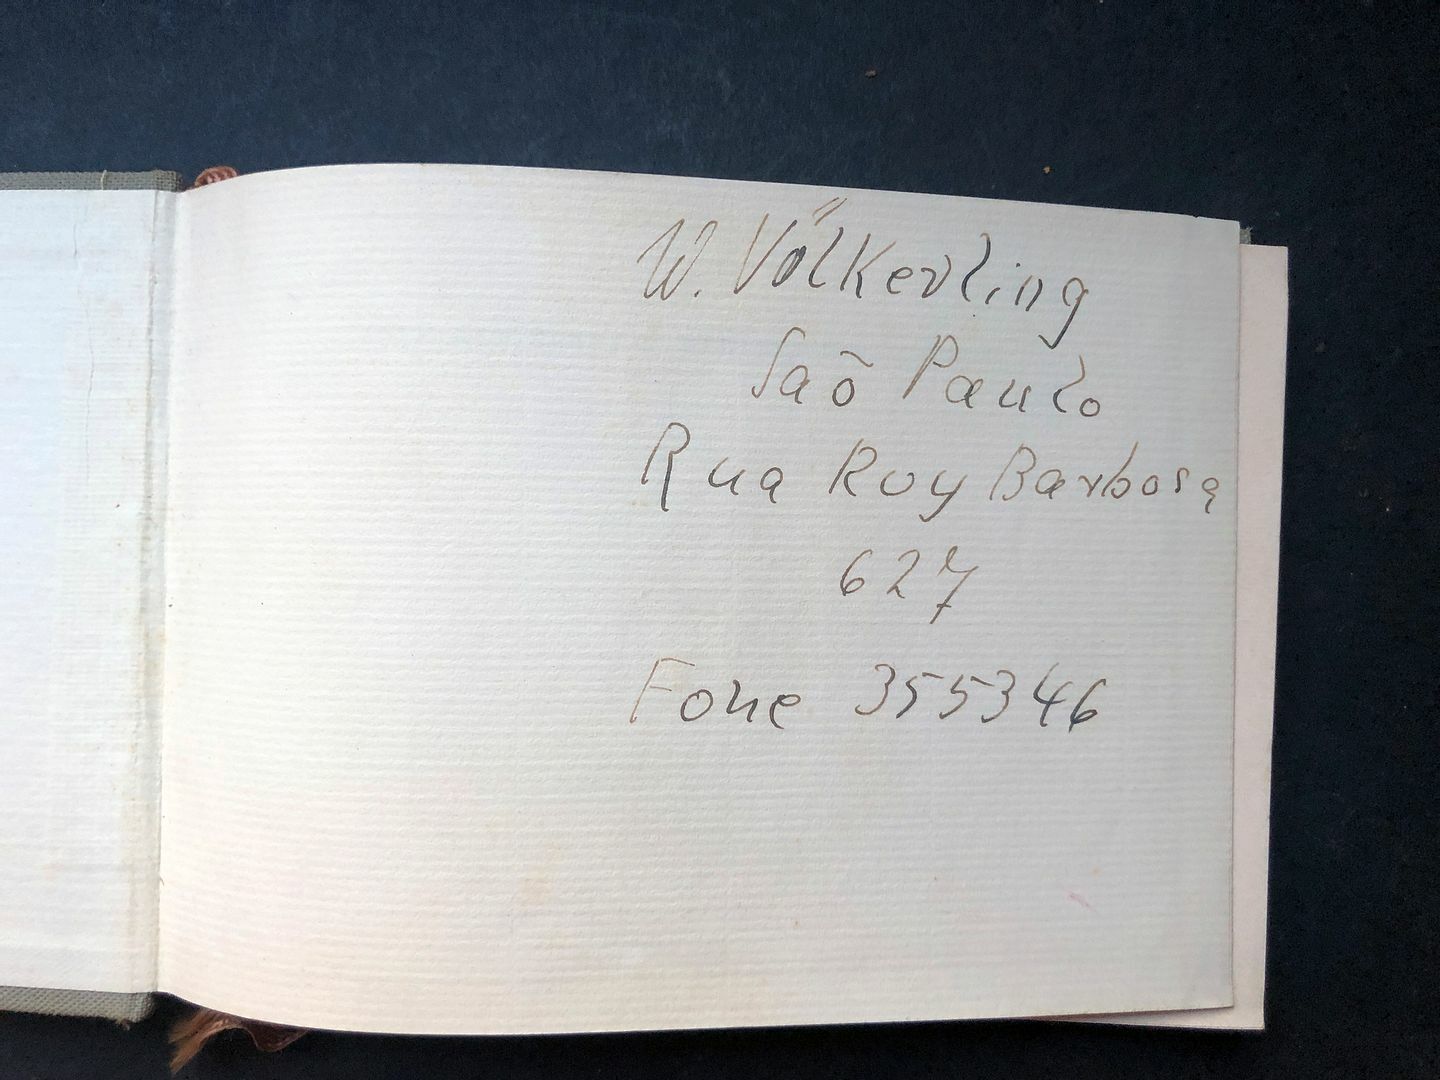 W. Völkerling
Saõ Paulo
Rua Ruy Barbosa
627
Fone 355346